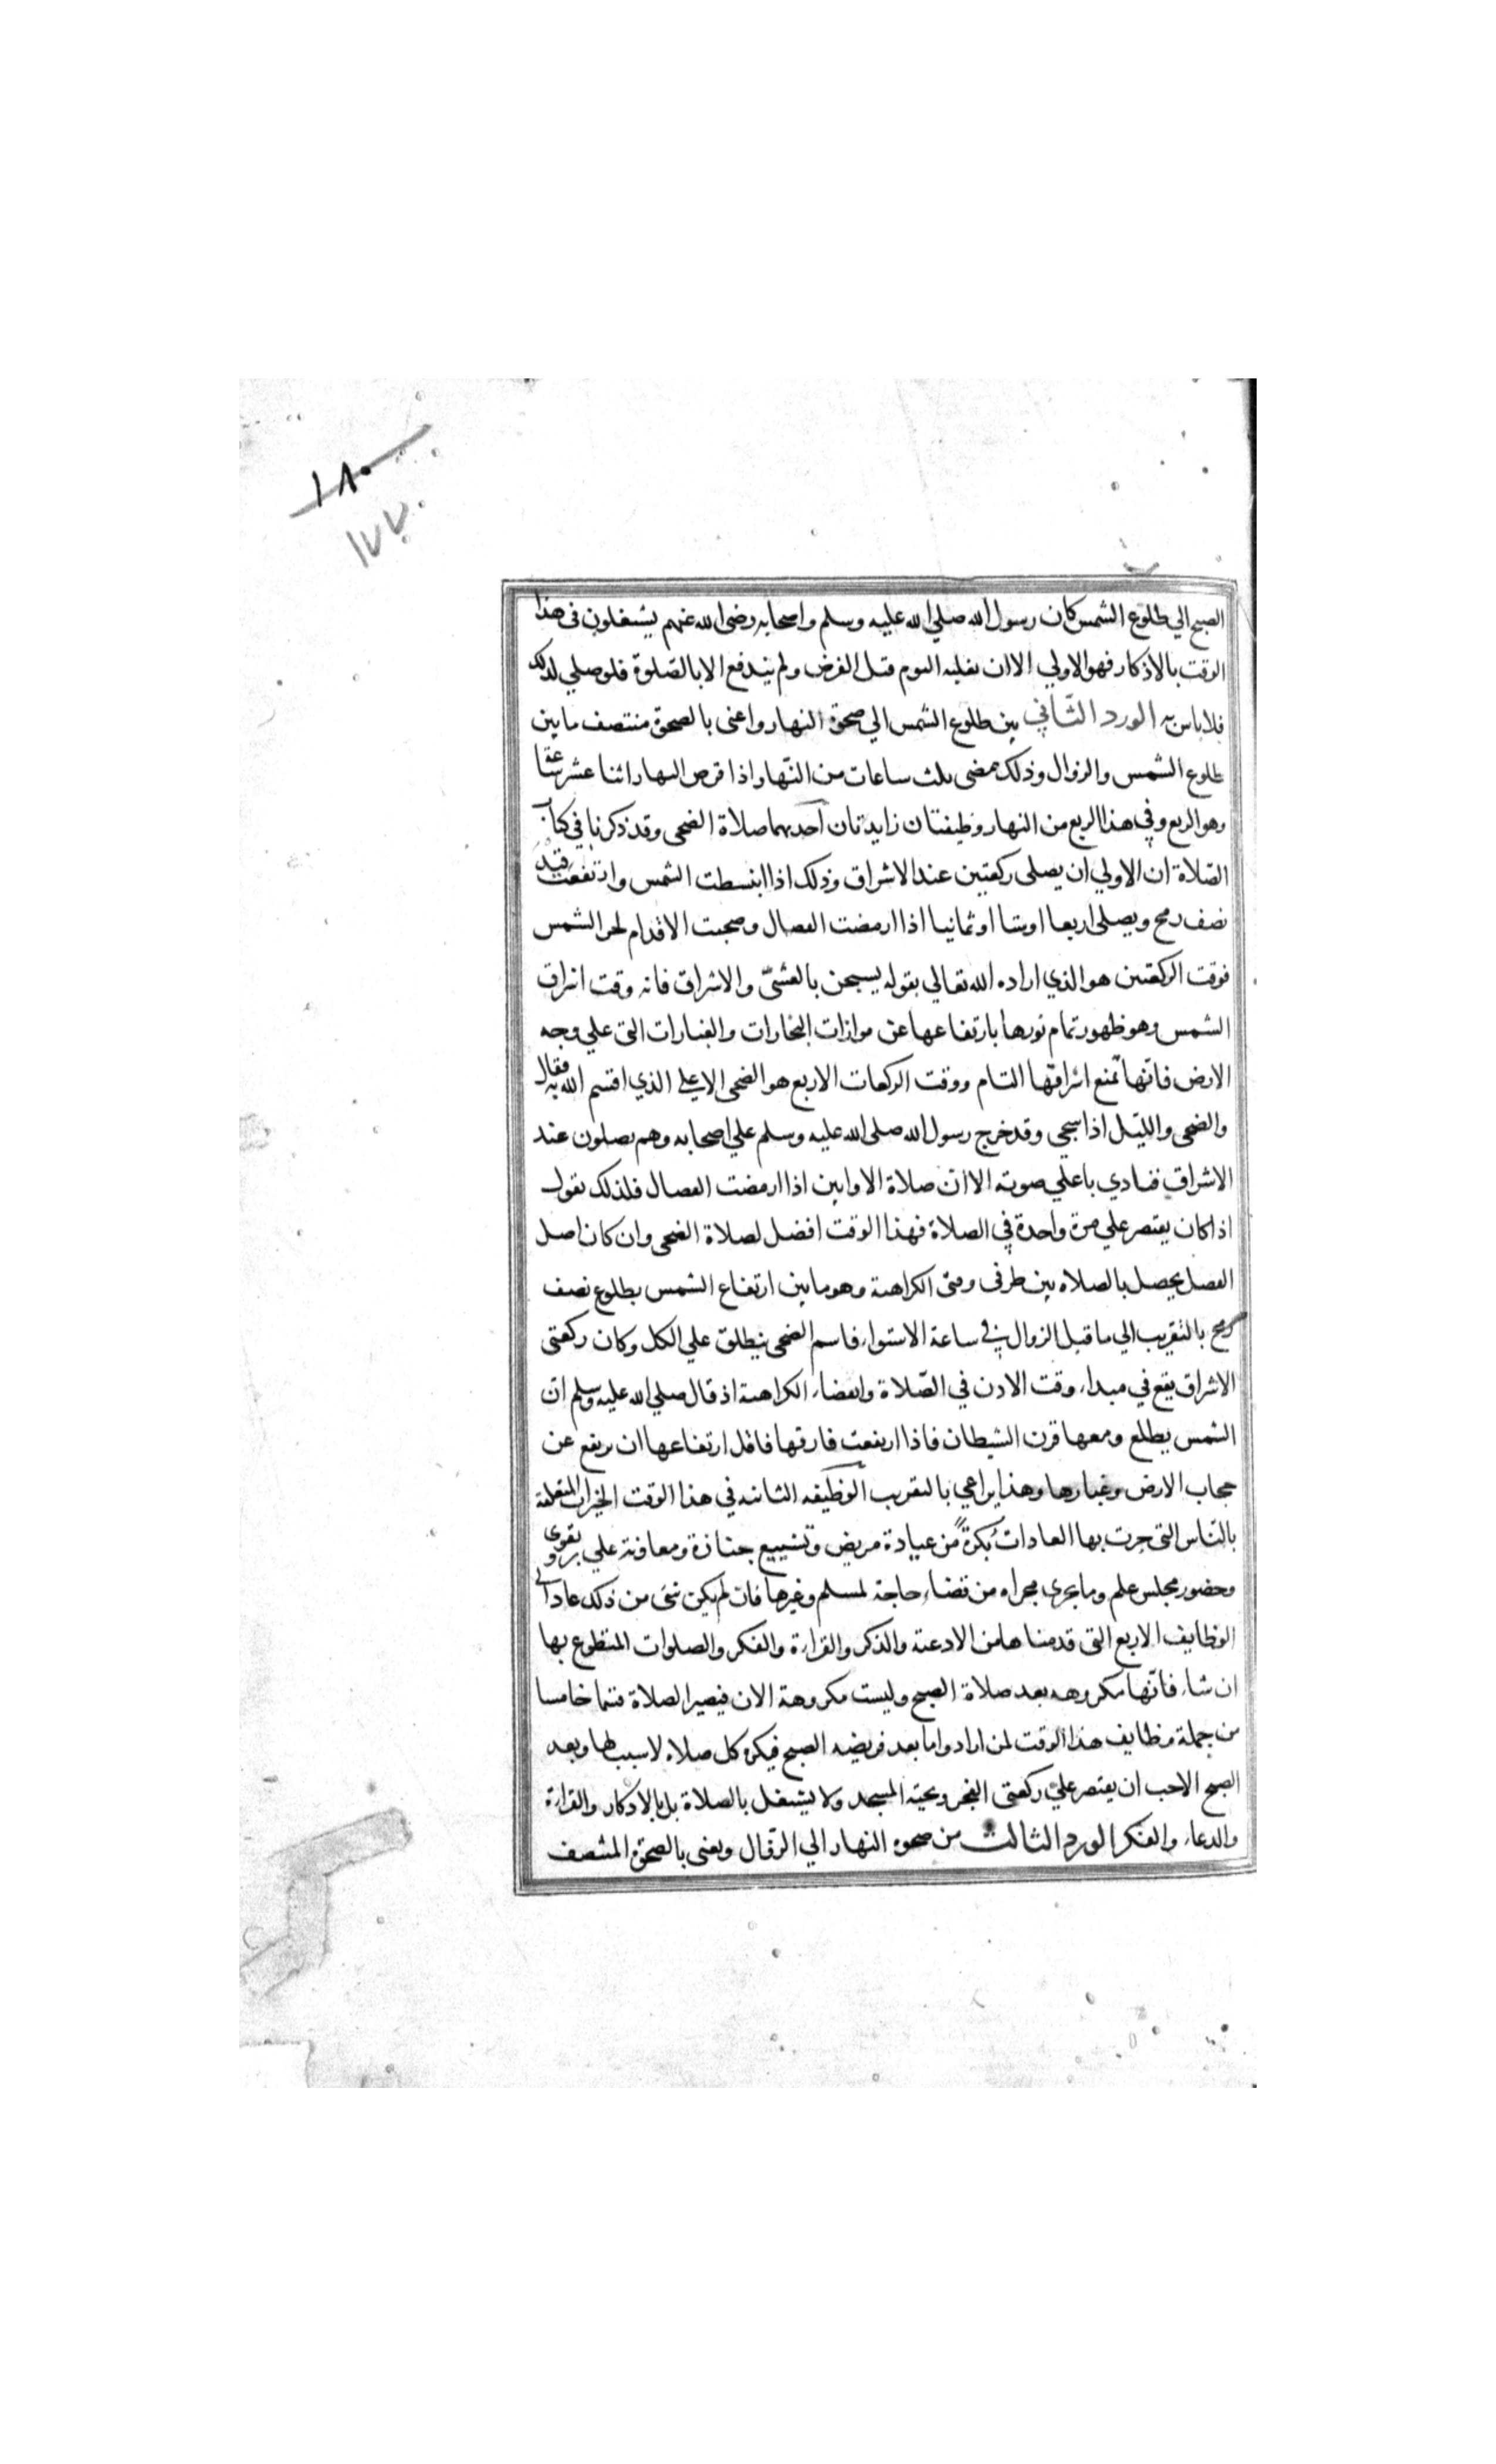 ١٨٠
١٧٧
الصبح الي طلوع الشمس كان رسول الله صلي الله عليه وسلم واصحابه رضى الله عنهم يشتغلون فى هذا
الوقت بالاذكار فهو الاولي الا ان يغلبه النوم قبل الفرض ولم يندفع الا بالصّلوة فلو صلي لذلك
فلا باس به الورد الثّاني بين طلوع الشمس الي ضحوة النهار واعنى بالضحوة منتصف ما بين
طلوع الشمس والزوال وذلك بمضى ثلث ساعات من النّهار اذا فرض النهار اثنا عشر ساعة
وهو الربع وفي هذا الربع من النهار وظيفتان زايدتان احديهما صلاة الضحى وقد ذكرنا في كتاب
الصّلاة ان الاولي ان يصلى ركعتين عند الاشراق وذلك اذا انبسطت الشمس وارتفعت قيد
نصف رمح ويصلى اربعا او ستا او ثمانيا اذا ارمضت الفصال وضحيت الاقدام لحر الشمس
فوقت الركعتين هو الذي اراده الله تعالي بقوله يسبحن بالعشىّ والاشراق فانه وقت اشراق
الشمس وهو ظهور تمام نورها بارتفاعها عن موازات البخارات والغبارات التى علي وجه
الارض فانّها تمنع اشراقها التام ووقت الركعات الاربع هو الضحى الاعلي الذي اقسم الله به فقال
والضحى واللّيل اذا سجى وقد خرج رسول الله صلى الله عليه وسلم علي اصحابه وهم يصلون عند
الاشراق فنادي باعلي صوته الا انّ صلاة الاوابين اذا ارمضت الفصال فلذلك نقول
اذا كان يقتصر علي مرة واحدة في الصلاة فهذا الوقت افضل لصلاة الضحى وان كان اصل
الفضل يحصل بالصلاه بين طرفى وقتى الكراهة وهو ما بين ارتفاع الشمس بطلوع نصف
رمح بالتقريب الي ما قبل الزوال في ساعة الاستواء فاسم الضحى ينطلق علي الكل وكان ركعتى
الاشراق يقع في مبداء وقت الاذن في الصّلاة وانقضاء الكراهة اذ قال صلي الله عليه وسلم انّ
الشمس يطلع ومعها قرن الشيطان فاذا ارتفعت فارقها فاقل ارتفاعها ان يرتفع عن
حجاب الارض وغبارها وهذا يراعي بالتقريب الوظيفه الثانيه في هذا الوقت الخيرات المتعلقة
بالنّاس التى جرت بها العادات بُكرةً من عيادة مريض وتشييع جنازة ومعاونة علي بر وتقوى
وحضور مجلس علم وما يجرى مجراه من قضاء حاجة لمسلم وغيرها فان لم يكن شى من ذلك عاد الى
الوظايف الاربع التى قدمناها من الادعة والذكر والقراءة والفكر والصلوات المتطوع بها
ان شاء فانّها مكروهه بعد صلاة الصبح وليست مكروهة الان فيصير الصلاة قسما خامسا
من جملة وظايف هذا الوقت لمن اراد واما بعد فريضه الصبح فيكره كل صلاه لا سبب لها وبعد
الصبح الاحب ان يقتصر علي ركعتى الفجر وتحية المسجد ولا يشتغل بالصلاة بل بالاذكار والقراءة
والدعاء والفكر الورد الثالث من ضحوه النهار الي الزوال ونعنى بالضحوة المنتصف